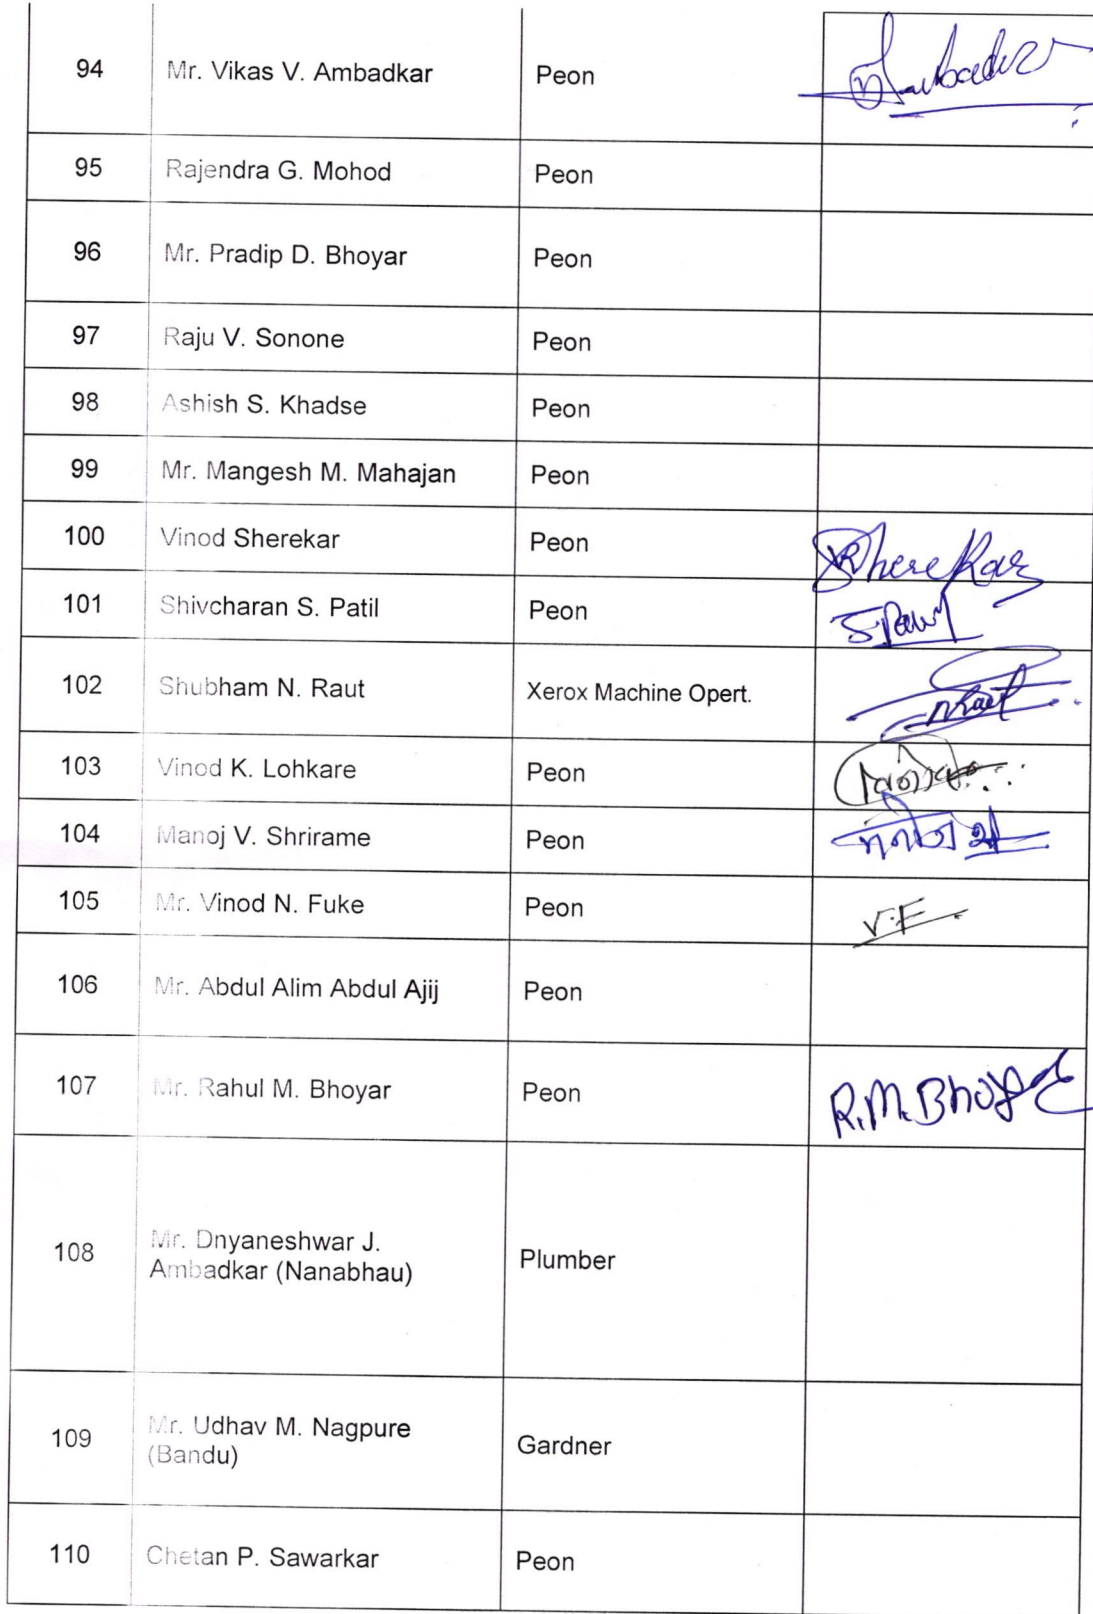 94 Mr. Vikas V. Ambadkar Peon
95 Rajendra G. Mohod Peon
96 Mr. Pradip D. Bhoyar Peon
97 Raju V. Sonone Peon
98 Ashish S. Khadse Peon
99 Mr. Mangesh M. Mahajan Peon
100 Vinod Sherekar Peon Sherekar
101 Shivcharan S. Patil Peon
102 Shubham N. Raut Xerox Machine Opert.
103 Vinod K. Lohkare Peon
104 Manoj V. Shrirame Peon
105 Mr. Vinod N. Fuke Peon V.F.
106 Mr. Abdul Alim Abdul Ajij Peon
107 Mr. Rahul M. Bhoyar Peon R.M.Bhoyar
108 Mr. Dnyaneshwar J. Plumber
Ambadkar (Nanabhau)
109 Mr. Udhav M. Nagpure Gardner
(Bandu)
110 Chetan P. Sawarkar Peon